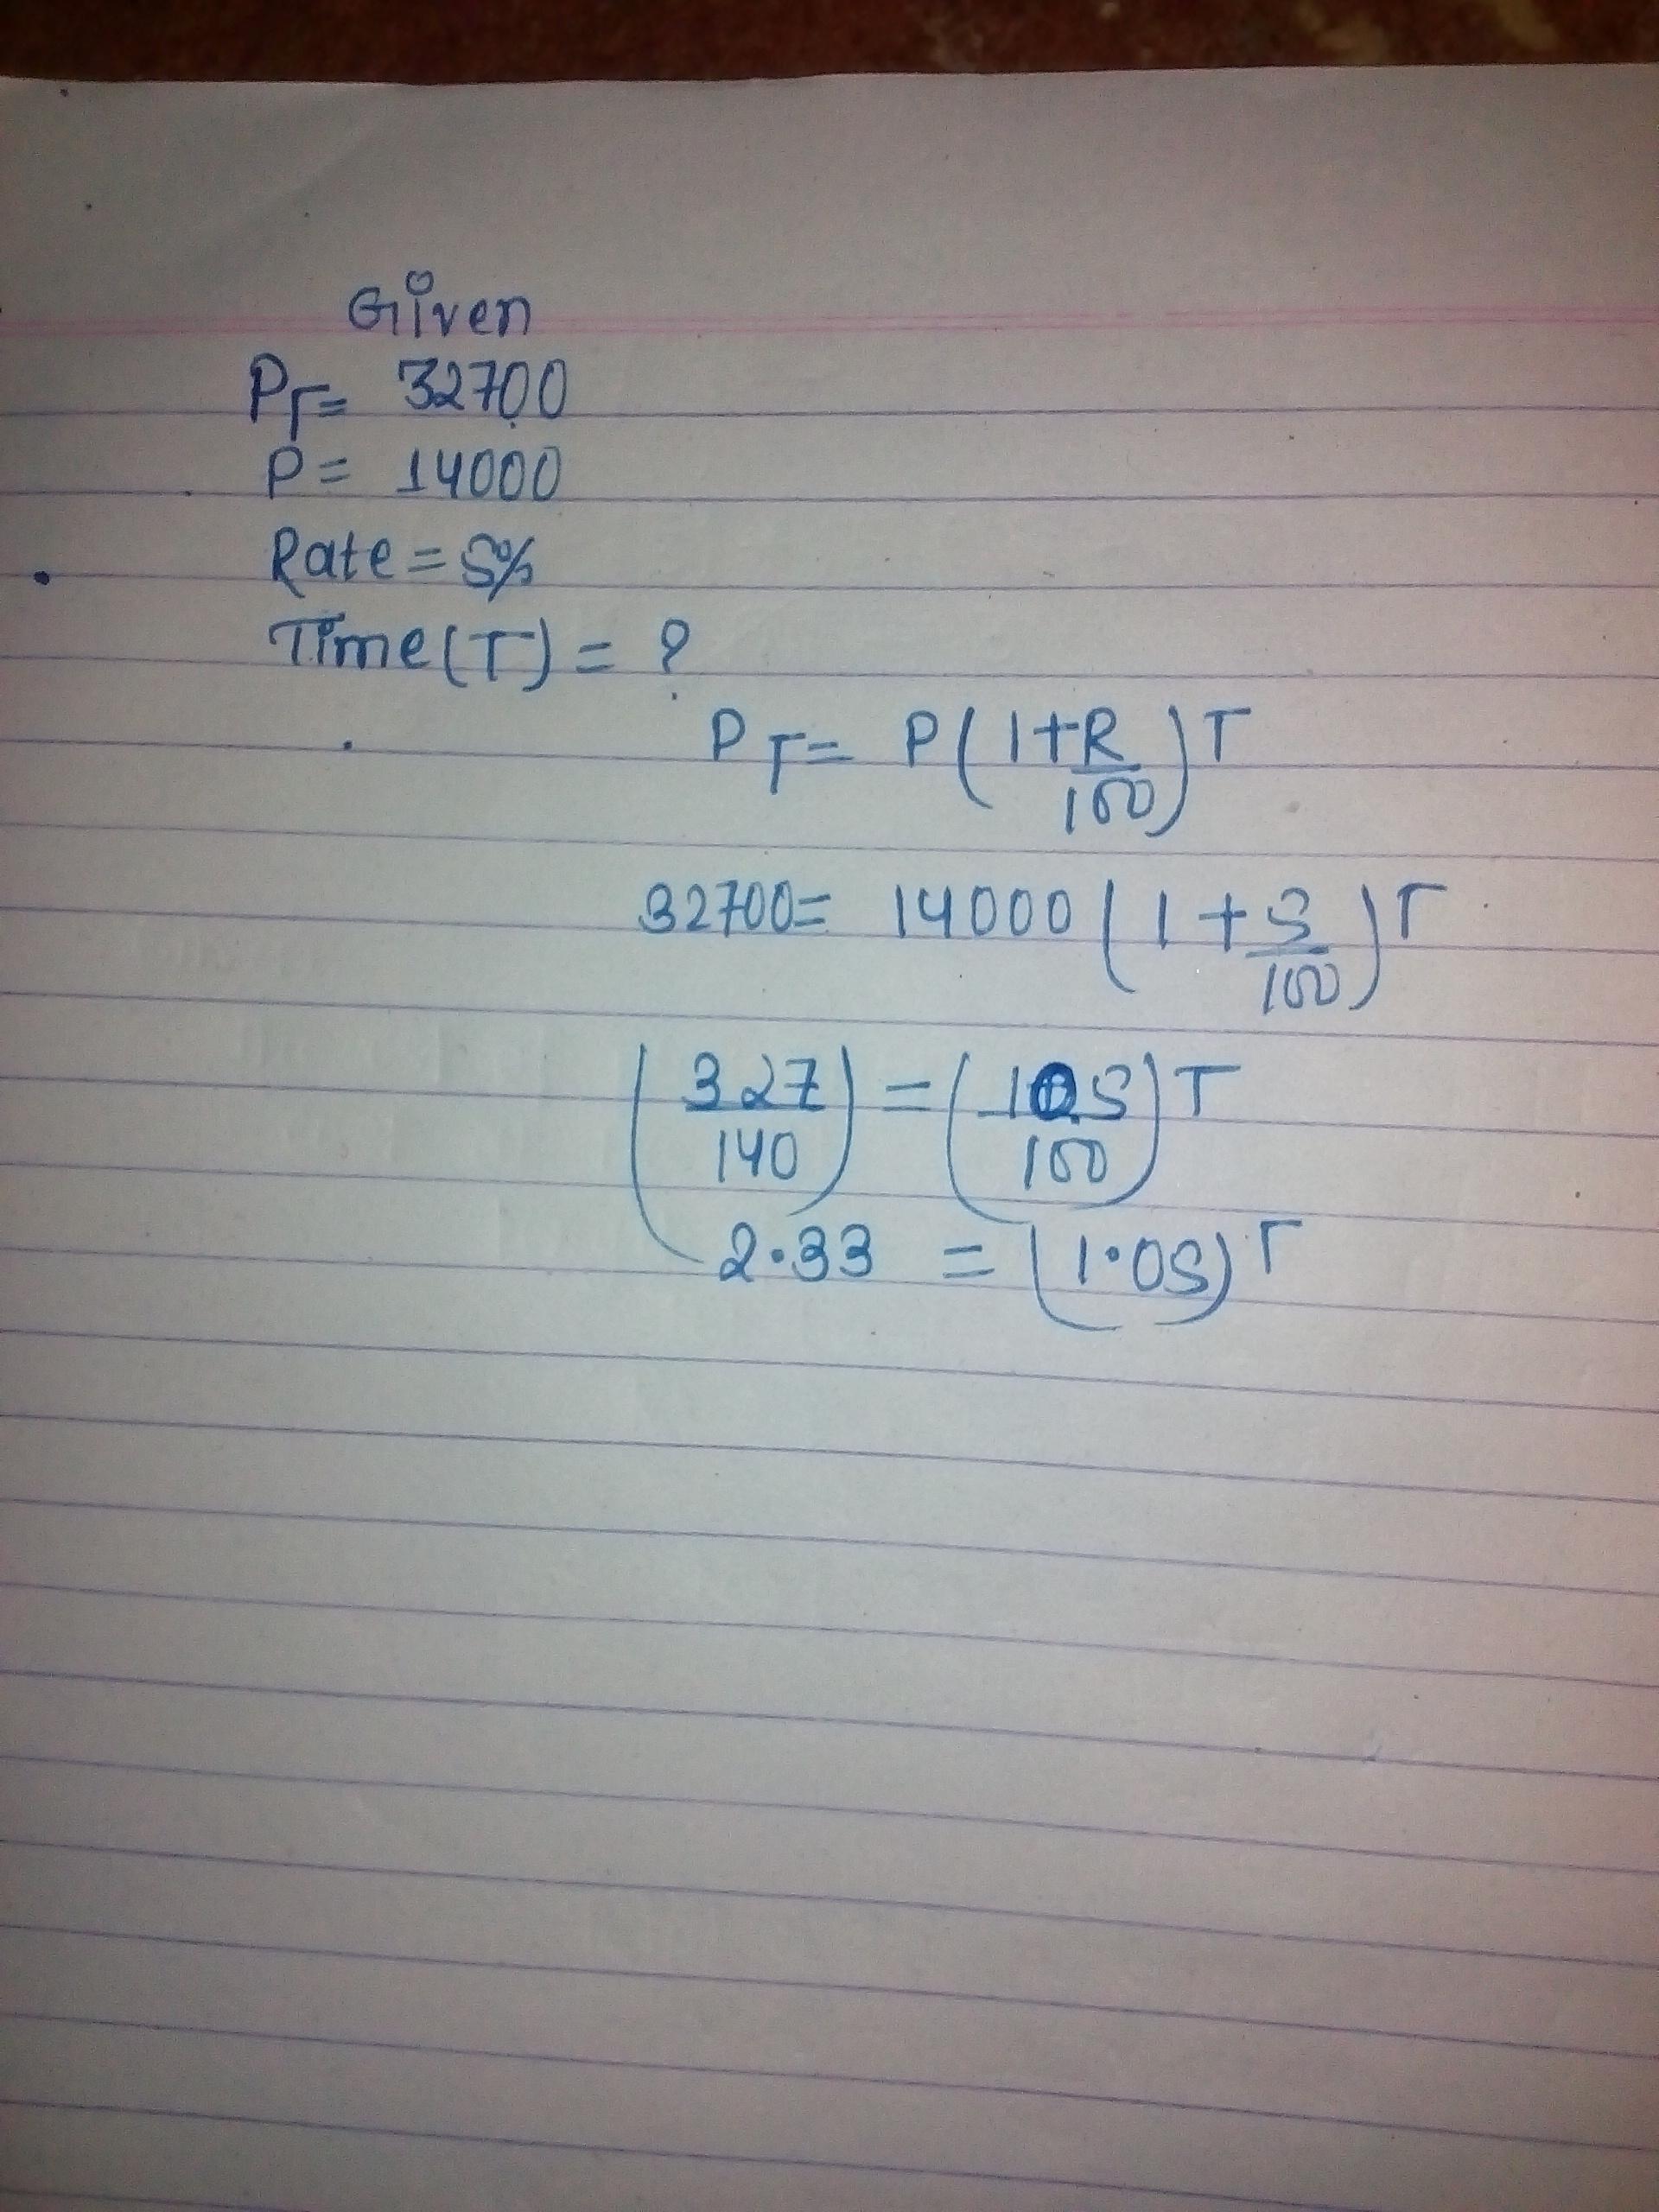 Given
PT= 32700
P= 14000
Rate = 5%
Time(T) = ?
PT= P(1+R/100)T
32700= 14000(1+5/100)T
(327/140)=(105/100)T
2.33 = (1.05)T